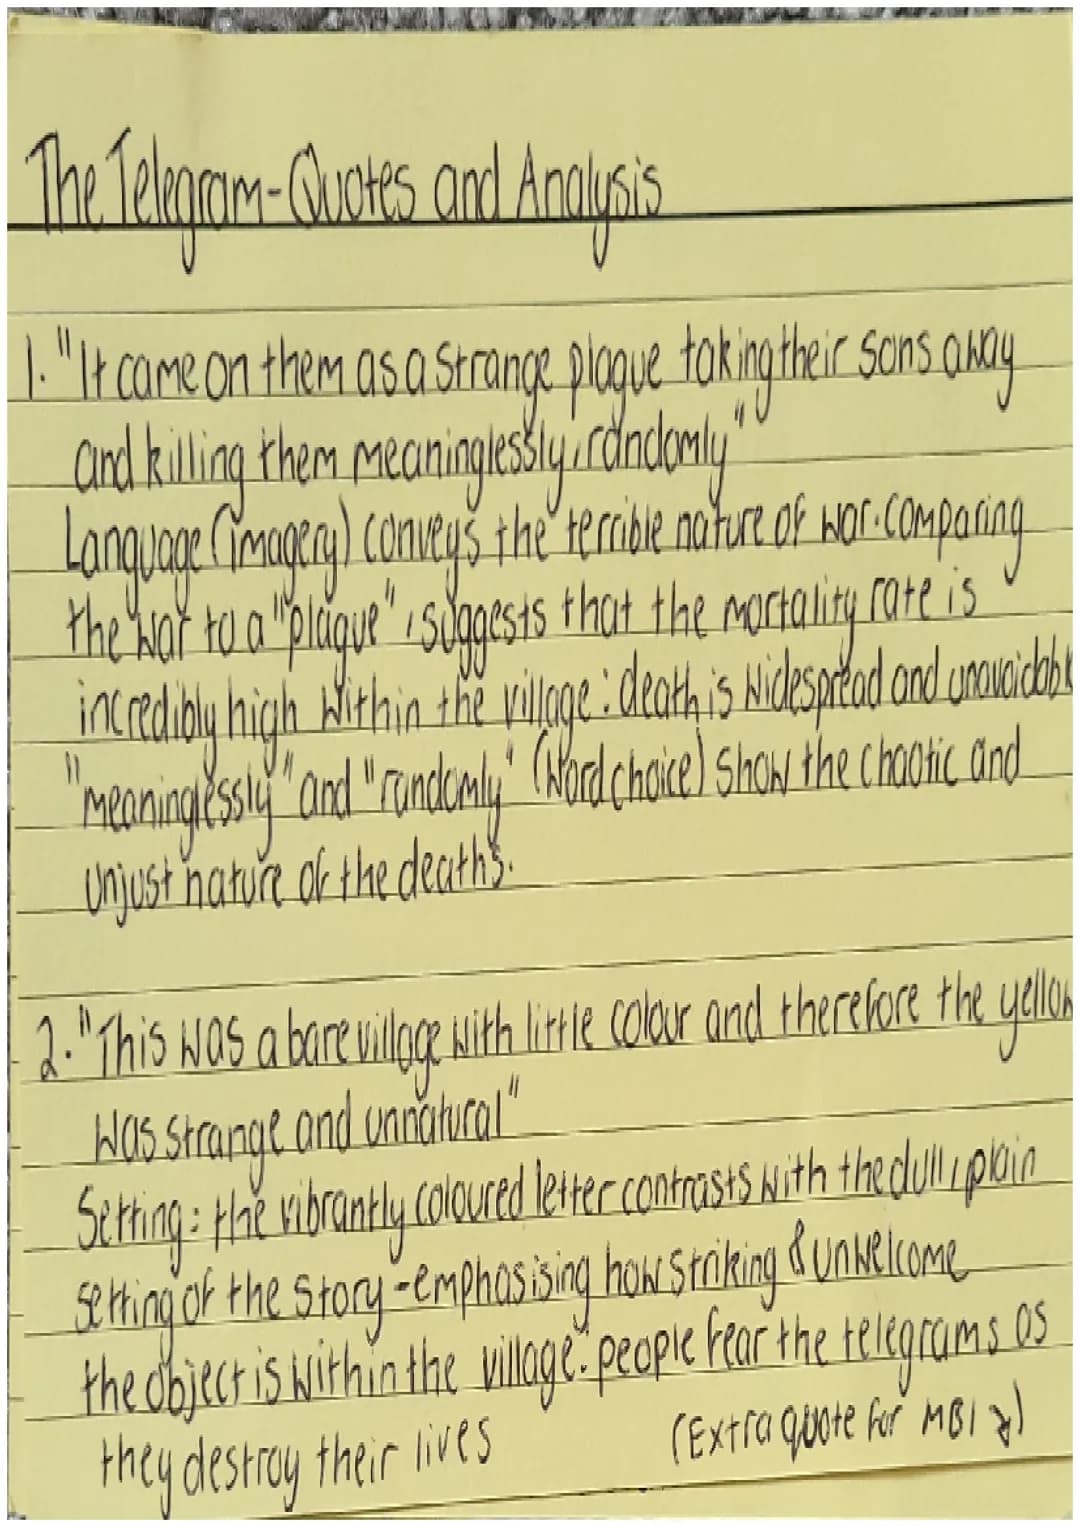 The Telegram-Quotes and Analysis
1. "It came on them as a strange plague taking their sons away
and killing them meaninglessly, randomly"
Language (imagery) conveys the terrible nature of war. Comparing
the war to a "plague", suggests that the mortality rate is
incredibly high within the village: death is widespread and unavoidable
"meaninglessly" and "randomly" (Word choice) show the chaotic and
unjust nature of the deaths.
2. "This was a bare village with little colour and therefore the yellow
was strange and unnatural"
Setting: the vibrantly coloured letter contrasts with the dull, plain
setting of the story - emphasising how striking & unwelcome
the object is within the village: people fear the telegrams as
they destroy their lives (Extra quote for MB1 ↓)